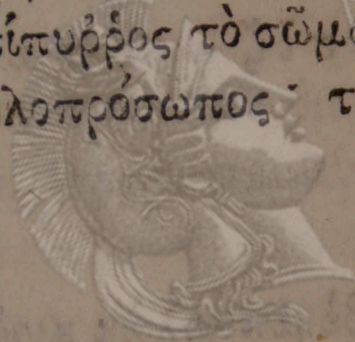 ίπυῤῥος τὸ σῶμ
λοπρόσωπος · τ